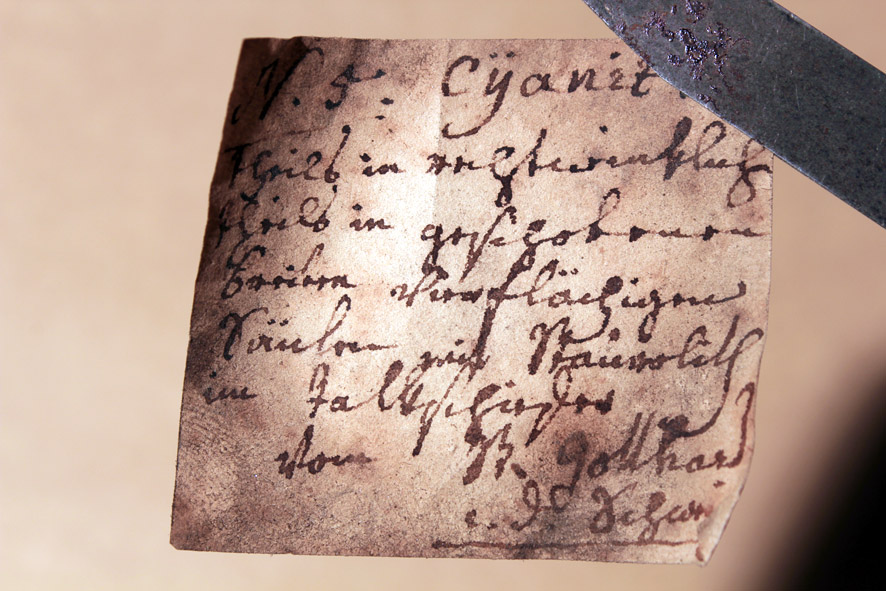 N. 5. Cÿanit
theils in rechtwinklich
theils in geschobenen
breiten vierflächigen
Säulen mit Staurolith
im Talkschiefer
vom St. Gotthard
i. d. Schwei